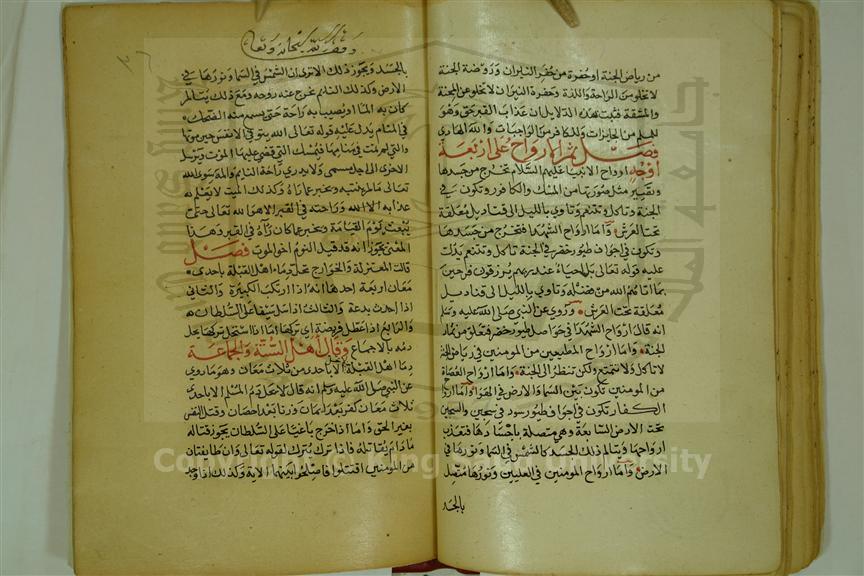 من رياض الجنة او حفرة من حفر النيران وروضة الجنة
لا تخلو من الراحة واللذة وحفرة النيران لا تخلو عن المحنة
والمشقة فثبت بهذه الدلايل ان عذاب القبر حق وهو
للمسلم من الجايزات وللكافر من الواجبات والله الهادي
فصل ثم الارواح على اربعة
اوجه ارواح الانبيا عليهم السلام تخرج من جسدها
وتصير مثل صورتها من المسك والكافور وتكون في
الجنة وتاكل وتتنعم وتاوي بالليل الى قناديل معلقة
تحت العرش واما ارواح الشهدا فتخرج من جسدها
وتكون في اجواف طيور خضر في الجنة تاكل وتتنعم يدلك
عليه قوله تعالى بل احياء عند ربهم يرزقون فرحين
بما اتاهم الله من فضله وتاوي بالليل الى قناديل
معلقة تحت العرش وروي عن النبي صلى الله عليه وسلم
انه قال ارواح الشهدا في حواصل طيور خضر فتعلق من ثمار
الجنة واما ارواح المطيعين من المومنين في رياض الجنة
لا تاكل ولا تتمتع ولكن تنظر الى الجنة واما ارواح العصاة
من المومنين تكون بين السما والارض في الهوا واما ارواح
الكفار تكون في اجواف طيور سود في سجين والسجين
تحت الارض السابعة وهي متصلة باجسادها فتعذب
ارواحها ويتالم ذلك الجسد كالشمس في السما ونورها في
الارض واما ارواح المومنين في العليين ونورها متصل
بالجسد
وقف لله سبحانه وتعالى
بالجسد ويجوز ذلك الا ترى ان الشمس في السما ونورها في
الارض وكذلك النايم تخرج عنه روحه ومع ذلك يتالم
كان به الما او يصيبا به راحة حتى يسمع منه الضحك
في المنام يدل عليه قوله تعالى الله يتوفى الانفس حين موتها
والتي لم تمت في منامها فيمسك التي قضى عليها الموت ويرسل
الاخرى الى اجل مسمى ولا يدري راحة النايم والمه سوى الله
تعالى مالم ينتبه ويخبر عما راه وكذلك الميت لا يعلم له
عذابه الا الله وراحته في القبر الا هو الله تعالى حتى
يبعث يوم القيامة ويخبر عما كان راه في القبر وهذا
المعنى يجوز انه قد قيل النوم اخو الموت فصل
قالت المعتزلة والخوارج تحل دماء اهل القبلة باحدى
معان اربعة احدها انه اذا ارتكب الكبيرة والثاني
اذا احدث بدعة والثالث اذا سل سيفا على السلطان
والرابع اذا عطل فريضة اي تركها اما اذا استحل تركها يحل
دمه بالاجماع وقال اهل السنة والجماعة
دما اهل القبلة الا باحدى من ثلاث معان وهو ما روي
عن النبي صلى الله عليه وسلم انه قال لا يحل دم المسلم الا باحدى
ثلاث معان كفر بعد ايمان وزنا بعد احصان وقتل النفس
بغير الحق واما اذا خرج باغيا على السلطان يجوز قتاله
ما دام يقاتله فاذا ترك يترك لقوله تعالى وان طايفتان
من المومنين اقتتلوا فاصلحوا بينهما الاية وكذلك اذا وجد